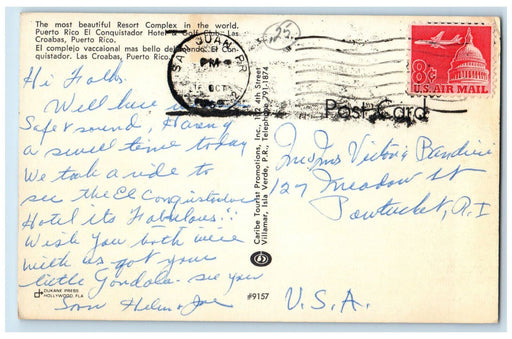 The most beautiful Resort Complex in the world.
Puerto Rico El Conquistador Hotel & Golf Club. Las
Croabas, Puerto Rico.
El complejo vaccaional mas bello del mundo. El Con-
quistador. Las Croabas, Puerto Rico.
SAN JUAN, P.R.
PM
OCT
1969
25
8¢
U.S. AIR MAIL
Post Card
Hi Folks
Well here
Safe & sound, Having
a swell time today
We took a ride to
see the El Conquistador
Hotel its Fabulous!!
Wish you both were
with us got your
little Gondola. see you
Soon Helen & Joe
Caribe Tourist Promotions, Inc., 4th Street
Villamar, Isla Verde, P.R., Telephone 791-1874
Mr Mrs Victor Pandisci
127 Meadow St
Pawtucket, R.I
U.S.A.
DUKANE PRESS
HOLLYWOOD, FLA
#9157